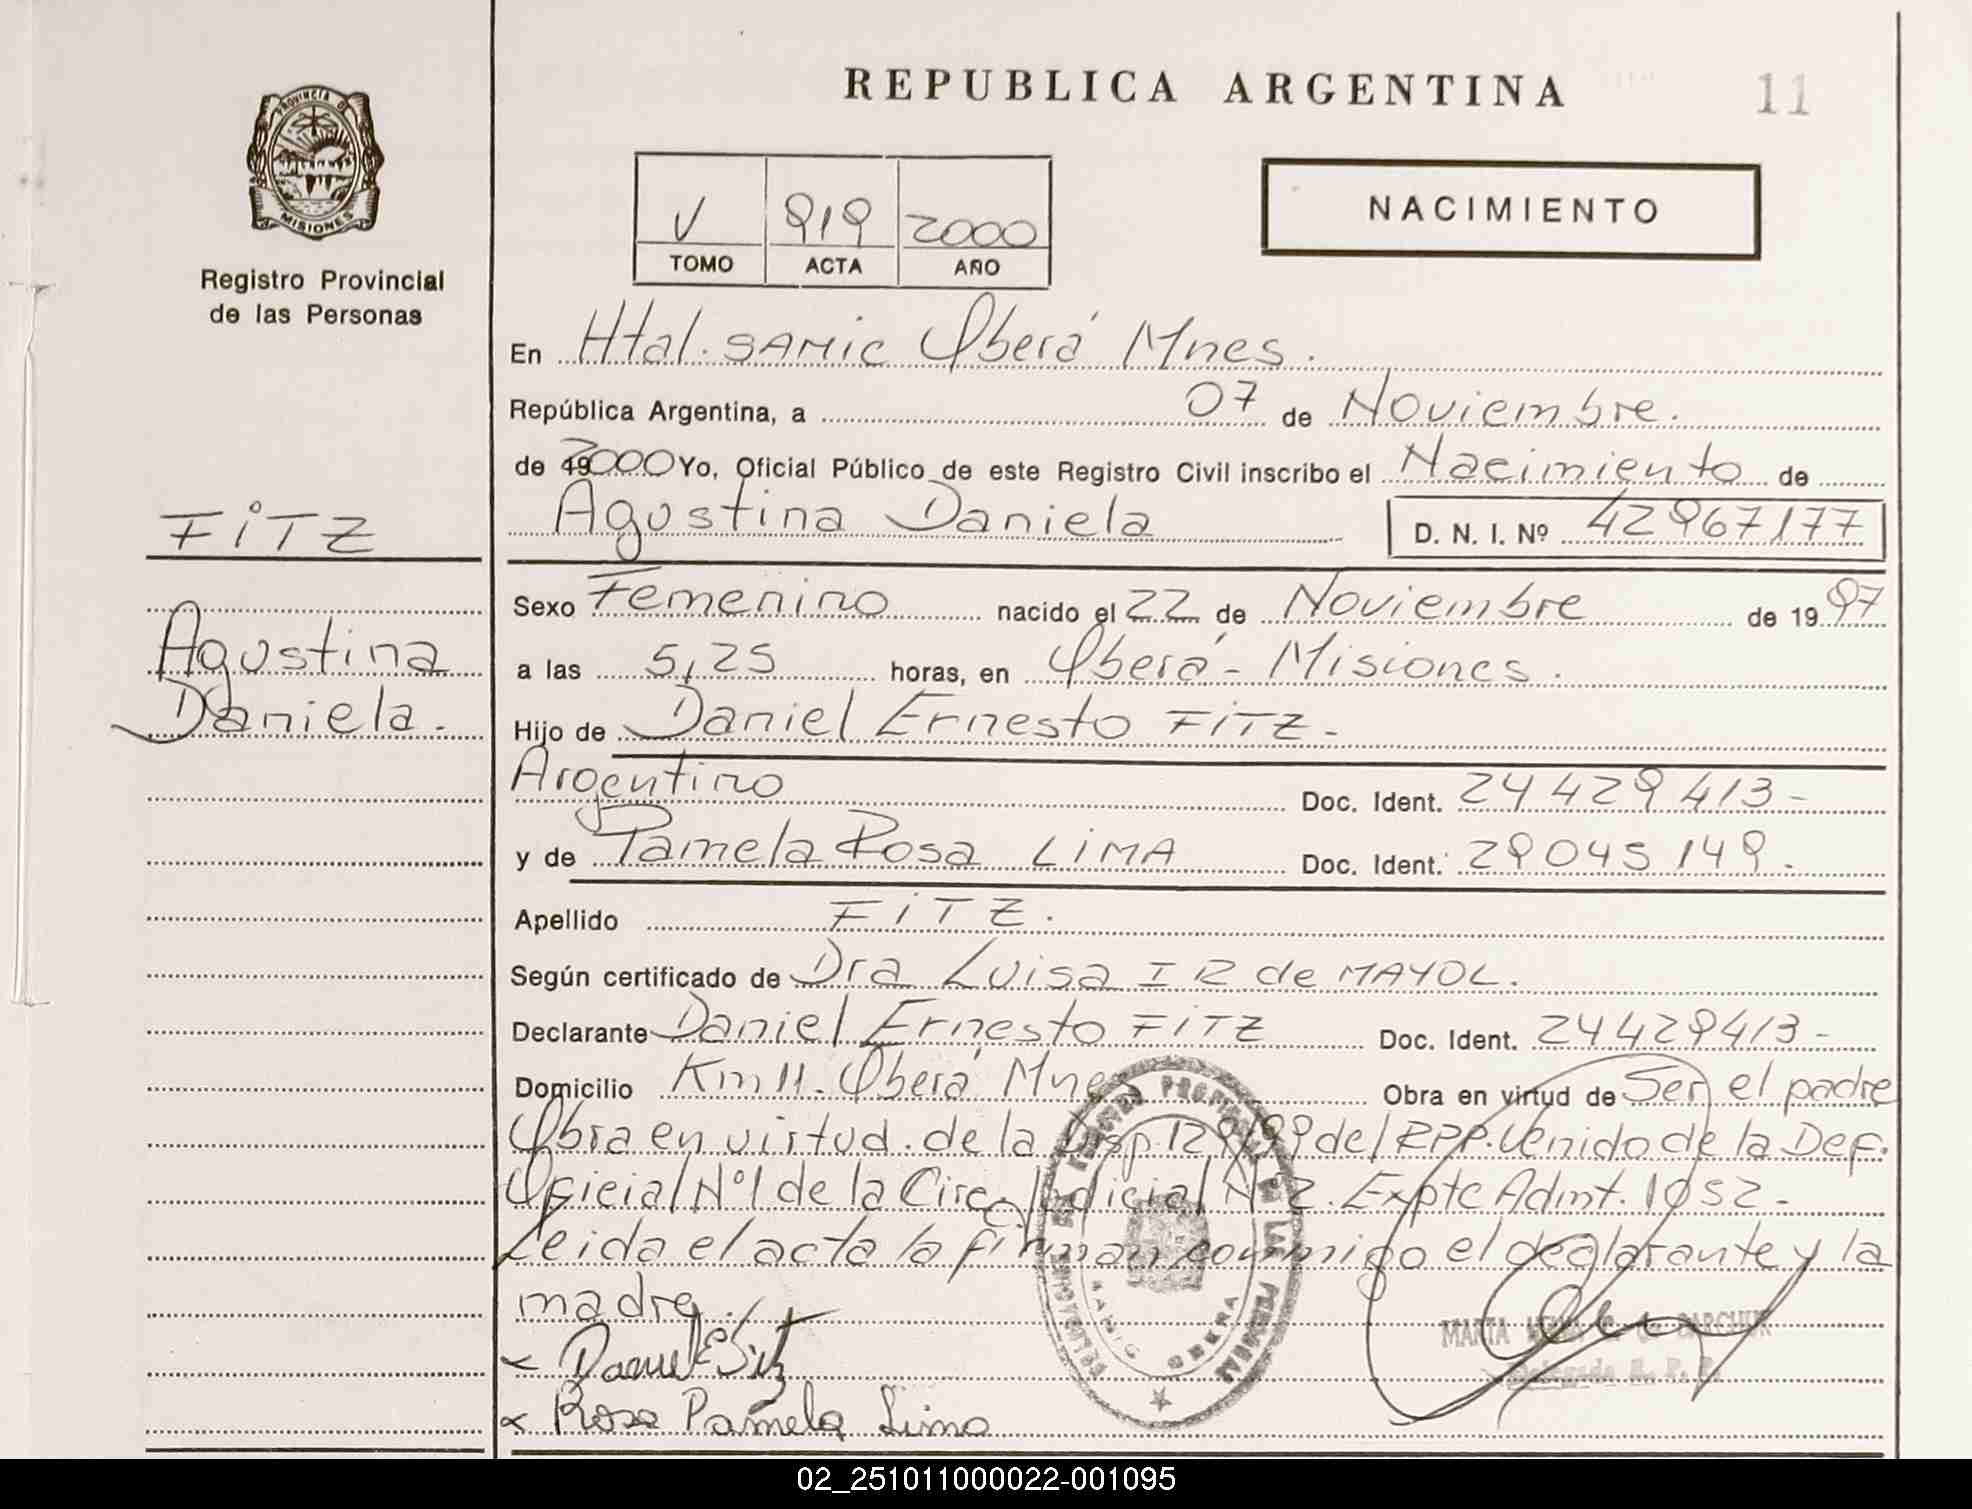 REPUBLICA ARGENTINA
11
PROVINCIA D
MISIONES
Registro Provincial
de las Personas
V 919 2000
TOMO ACTA AÑO
NACIMIENTO
En Htal. SAMIC Oberá Mnes.
República Argentina, a 07 de Noviembre.
de 192000 Yo, Oficial Público de este Registro Civil inscribo el Nacimiento de
Agustina Daniela D. N. I. Nº 42967177
FITZ
Agustina
Daniela.
Sexo Femenino nacido el 22 de Noviembre de 1997
a las 5,25 horas, en Oberá - Misiones.
Hijo de Daniel Ernesto FITZ -
Argentino Doc. Ident. 24429413-
y de Pamela Rosa LIMA Doc. Ident. 29045149.
Apellido FITZ.
Según certificado de Dra Luisa I R de MAYOL.
Declarante Daniel Ernesto FITZ Doc. Ident. 24429413-
Domicilio Km 11. Oberá Mnes Obra en virtud de Ser el padre
Obra en virtud. de la Disp. 129/99 del RPP. Venido de la Def.
Oficial Nº 1 de la Circ. Judicial Nº 2. Expte Admt. 1052 -
Leida el acta la firman conmigo el declarante y la
madre.
Daniel E Fitz
Rosa Pamela Lima
MARTA
Delegada R. P. P.
OBERA
02_251011000022-001095